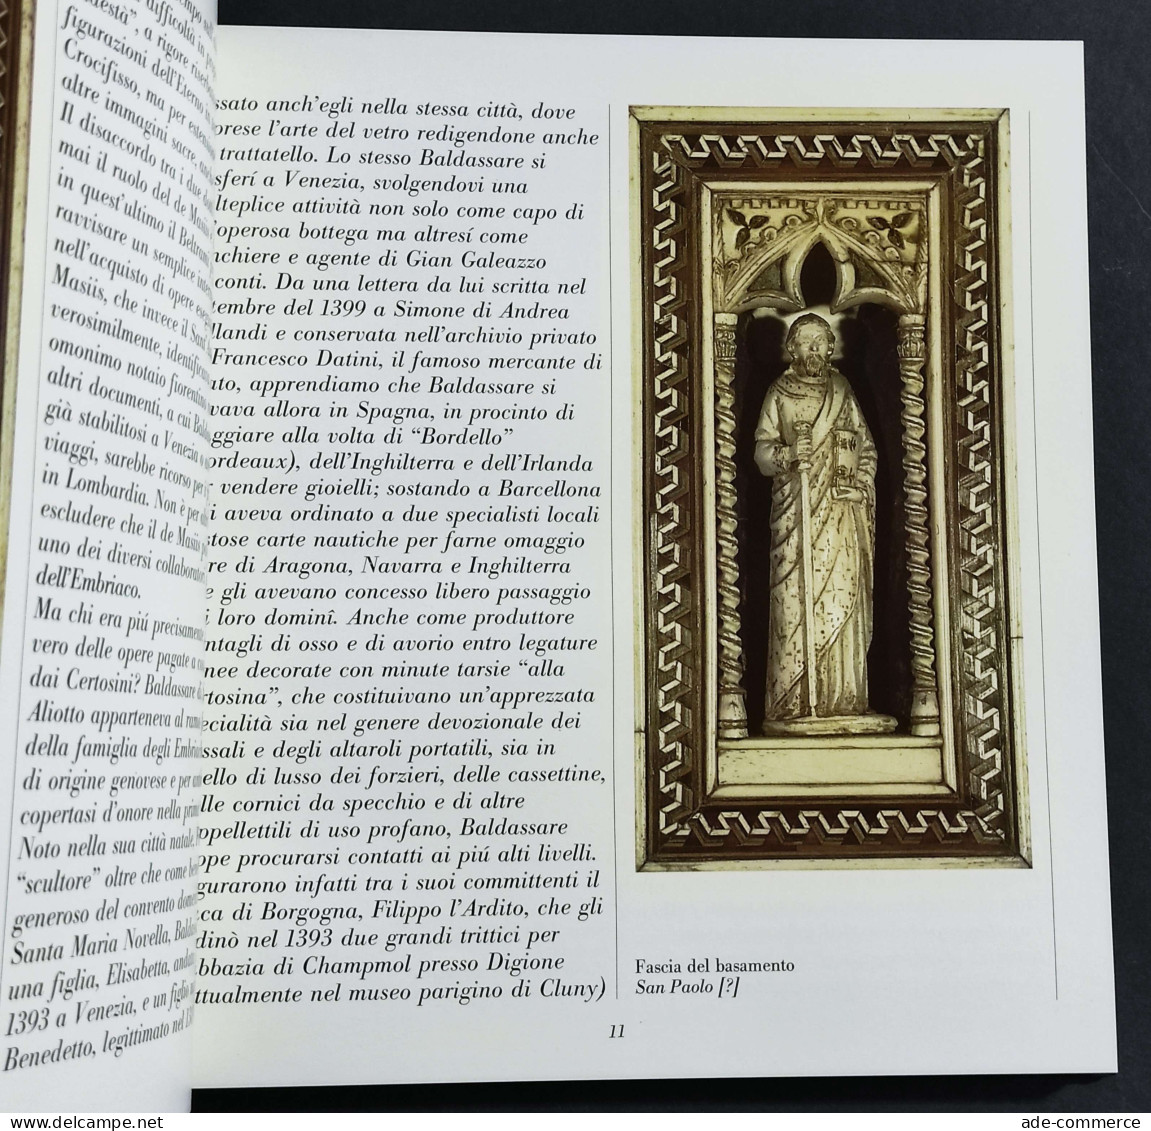 difficoltà in
", a rigore
figurazioni dell'Eterno
Crocifisso, ma per
altre immagini sacre,
Il disaccordo tra i due
mai il ruolo del de Masiis
in quest'ultimo il Beltrami
ravvisare un semplice
nell'acquisto di opere
Masiis, che invece il
verosimilmente,
omonimo notaio fiorentino
altri documenti, a cui
già stabilitosi a Venezia o
viaggi, sarebbe ricorso per
in Lombardia. Non è per
escludere che il de Masiis
uno dei diversi
dell'Embriaco.
Ma chi era piú precisamente
vero delle opere pagate a
dai Certosini? Baldassare
Aliotto apparteneva al
della famiglia degli
di origine genovese e per
copertasi d'onore nella
Noto nella sua città natale
"scultore" oltre che come
generoso del convento
Santa Maria Novella,
una figlia, Elisabetta,
1393 a Venezia, e un figlio
Benedetto, legittimato nel
ssato anch'egli nella stessa città, dove
prese l'arte del vetro redigendone anche
trattatello. Lo stesso Baldassare si
sferí a Venezia, svolgendovi una
lteplice attività non solo come capo di
'operosa bottega ma altresí come
nchiere e agente di Gian Galeazzo
conti. Da una lettera da lui scritta nel
tembre del 1399 a Simone di Andrea
llandi e conservata nell'archivio privato
Francesco Datini, il famoso mercante di
ato, apprendiamo che Baldassare si
vava allora in Spagna, in procinto di
ggiare alla volta di "Bordello"
ordeaux), dell'Inghilterra e dell'Irlanda
vendere gioielli; sostando a Barcellona
i aveva ordinato a due specialisti locali
stose carte nautiche per farne omaggio
re di Aragona, Navarra e Inghilterra
e gli avevano concesso libero passaggio
i loro dominî. Anche come produttore
ntagli di osso e di avorio entro legature
nee decorate con minute tarsie "alla
rtosina", che costituivano un'apprezzata
ecialità sia nel genere devozionale dei
ssali e degli altaroli portatili, sia in
ello di lusso dei forzieri, delle cassettine,
lle cornici da specchio e di altre
ppellettili di uso profano, Baldassare
ppe procurarsi contatti ai piú alti livelli.
gurarono infatti tra i suoi committenti il
ca di Borgogna, Filippo l'Ardito, che gli
dinò nel 1393 due grandi trittici per
bbazia di Champmol presso Digione
ttualmente nel museo parigino di Cluny)
Fascia del basamento
San Paolo [?]
11
ade-commerce